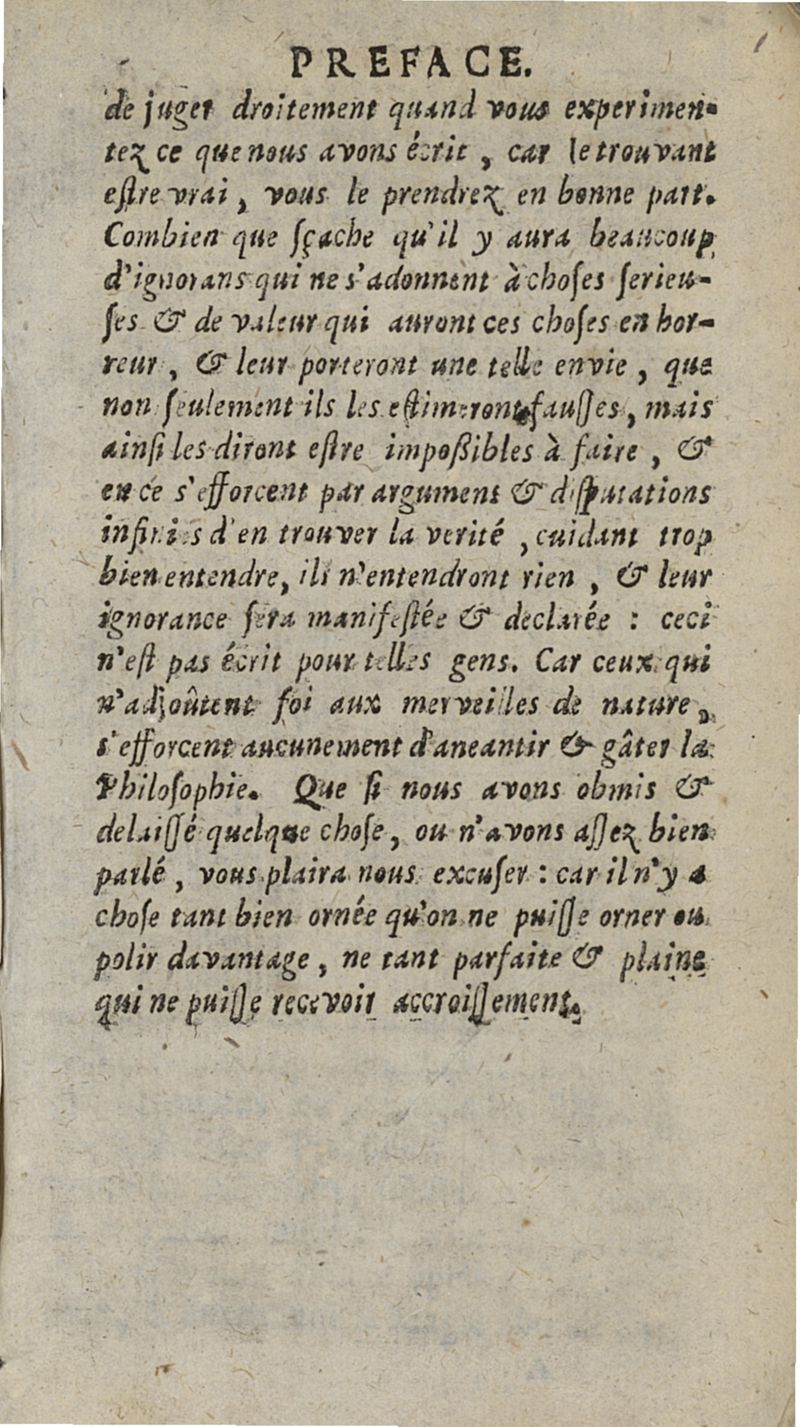 PREFACE.
de juger droitement quand vous experimen-
tez ce que nous avons écrit, car le trouvant
eſtre vrai, vous le prendrez en bonne part.
Combien que ſçache qu'il y aura beaucoup
d'ignorans qui ne s'adonnent à choſes ſerieu-
ſes & de valeur qui auront ces choſes en hor-
reur, & leur porteront une telle envie, que
non ſeulement ils les eſtimeront fauſſes, mais
ainſi les diront eſtre impoſſibles à faire, &
en ce s'efforcent par argument & diſputations
infinies d'en trouver la verité, cuidant trop
bien entendre, ils n'entendront rien, & leur
ignorance ſera manifeſtée & declarée : ceci
n'eſt pas écrit pour telles gens. Car ceux qui
n'adjoûtent foi aux merveilles de nature,
s'efforcent aucunement d'aneantir & gâter la
Philoſophie. Que ſi nous avons obmis &
delaiſſé quelque choſe, ou n'avons aſſez bien
parlé, vous plaira nous excuſer : car il n'y a
choſe tant bien ornée qu'on ne puiſſe orner ou
polir davantage, ne tant parfaite & plaine
qui ne puiſſe recevoir accroiſſement.